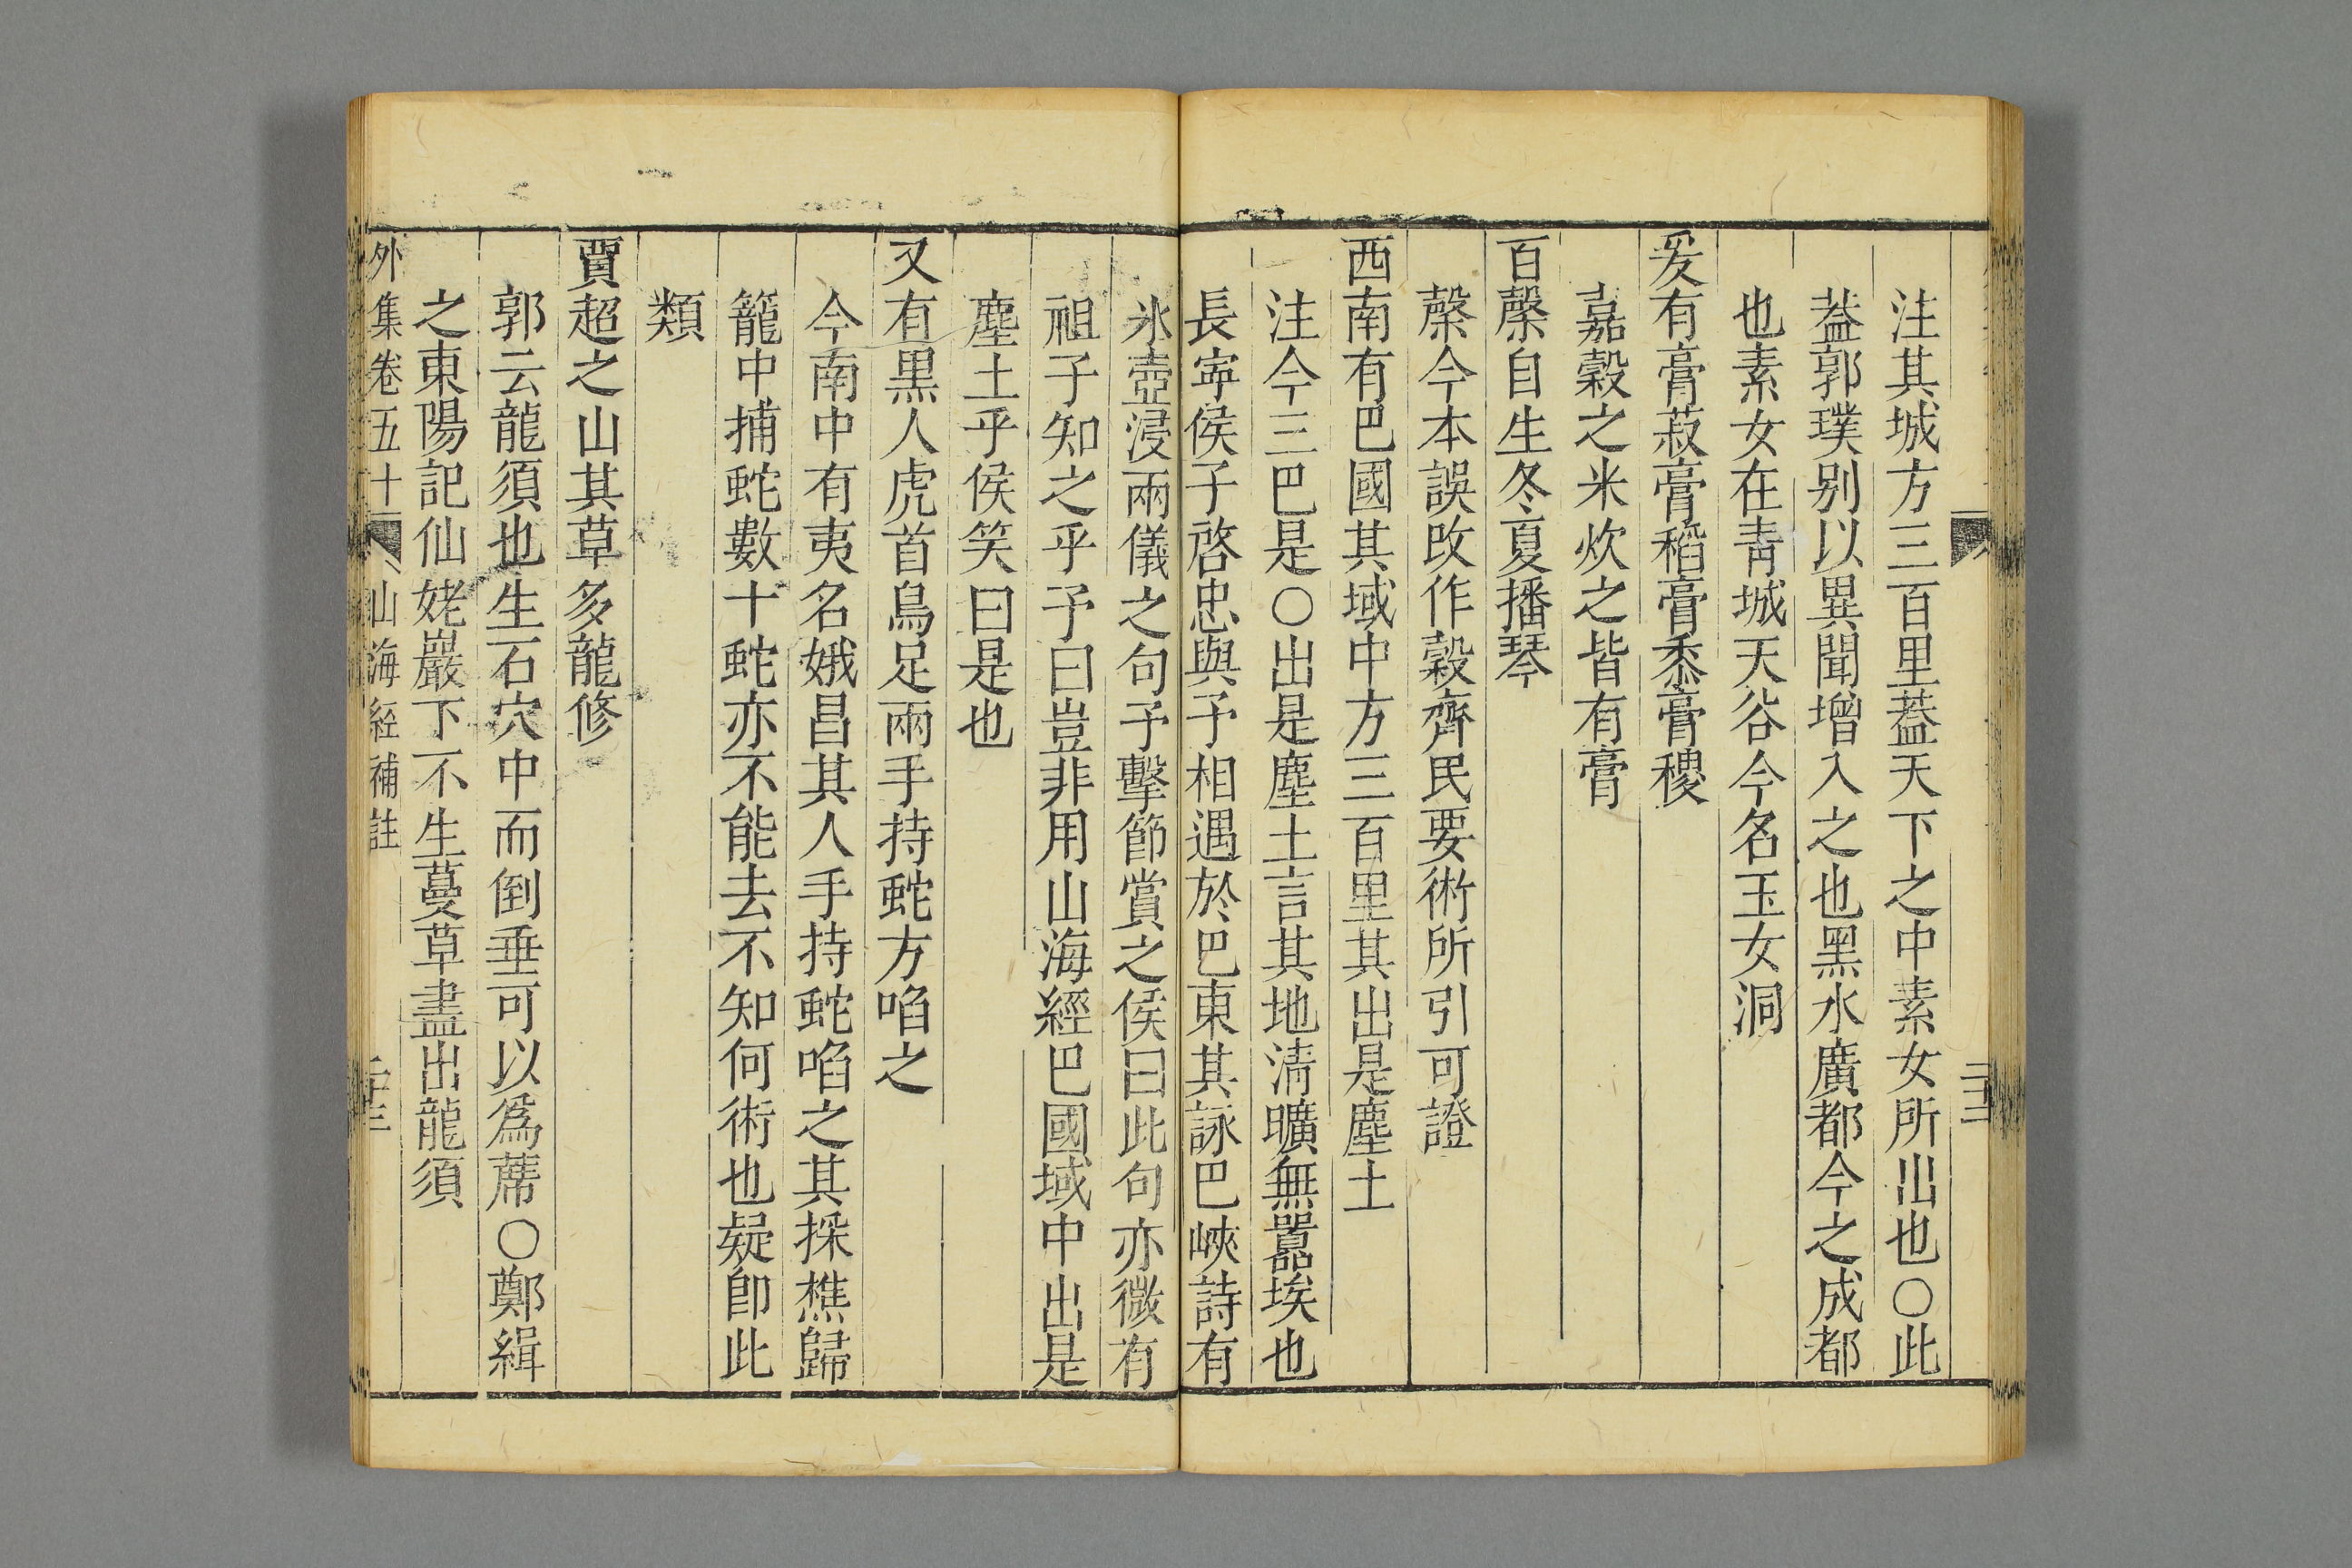 注其城方三百里葢天下之中素女所出也○此
葢郭璞别以異聞增入之也黑水廣都今之成都
也素女在青城天谷今名玉女洞
爰有膏菽膏稻膏黍膏稷
嘉穀之米炊之皆有膏
百糓自生冬夏播琴
糓今本誤改作穀齊民要術所引可證
西南有巴國其域中方三百里其出是塵土
注今三巴是○出是塵土言其地清曠無囂埃也
長寧侯子啓忠與予相遇於巴東其詠巴峽詩有
氷壺浸兩儀之句予擊節賞之侯曰此句亦微有
祖子知之乎予曰豈非用山海經巴國域中出是
塵土乎侯笑曰是也
又有黑人虎首鳥足兩手持蛇方啗之
今南中有夷名娥昌其人手持蛇啗之其採樵歸
籠中捕蛇數十蛇亦不能去不知何術也疑卽此
類
賈超之山其草多龍修
郭云龍須也生石穴中而倒垂可以爲蓆○鄭緝
之東陽記仙姥巖下不生蔓草盡出龍須
外集卷五十 山海經補註 二十三